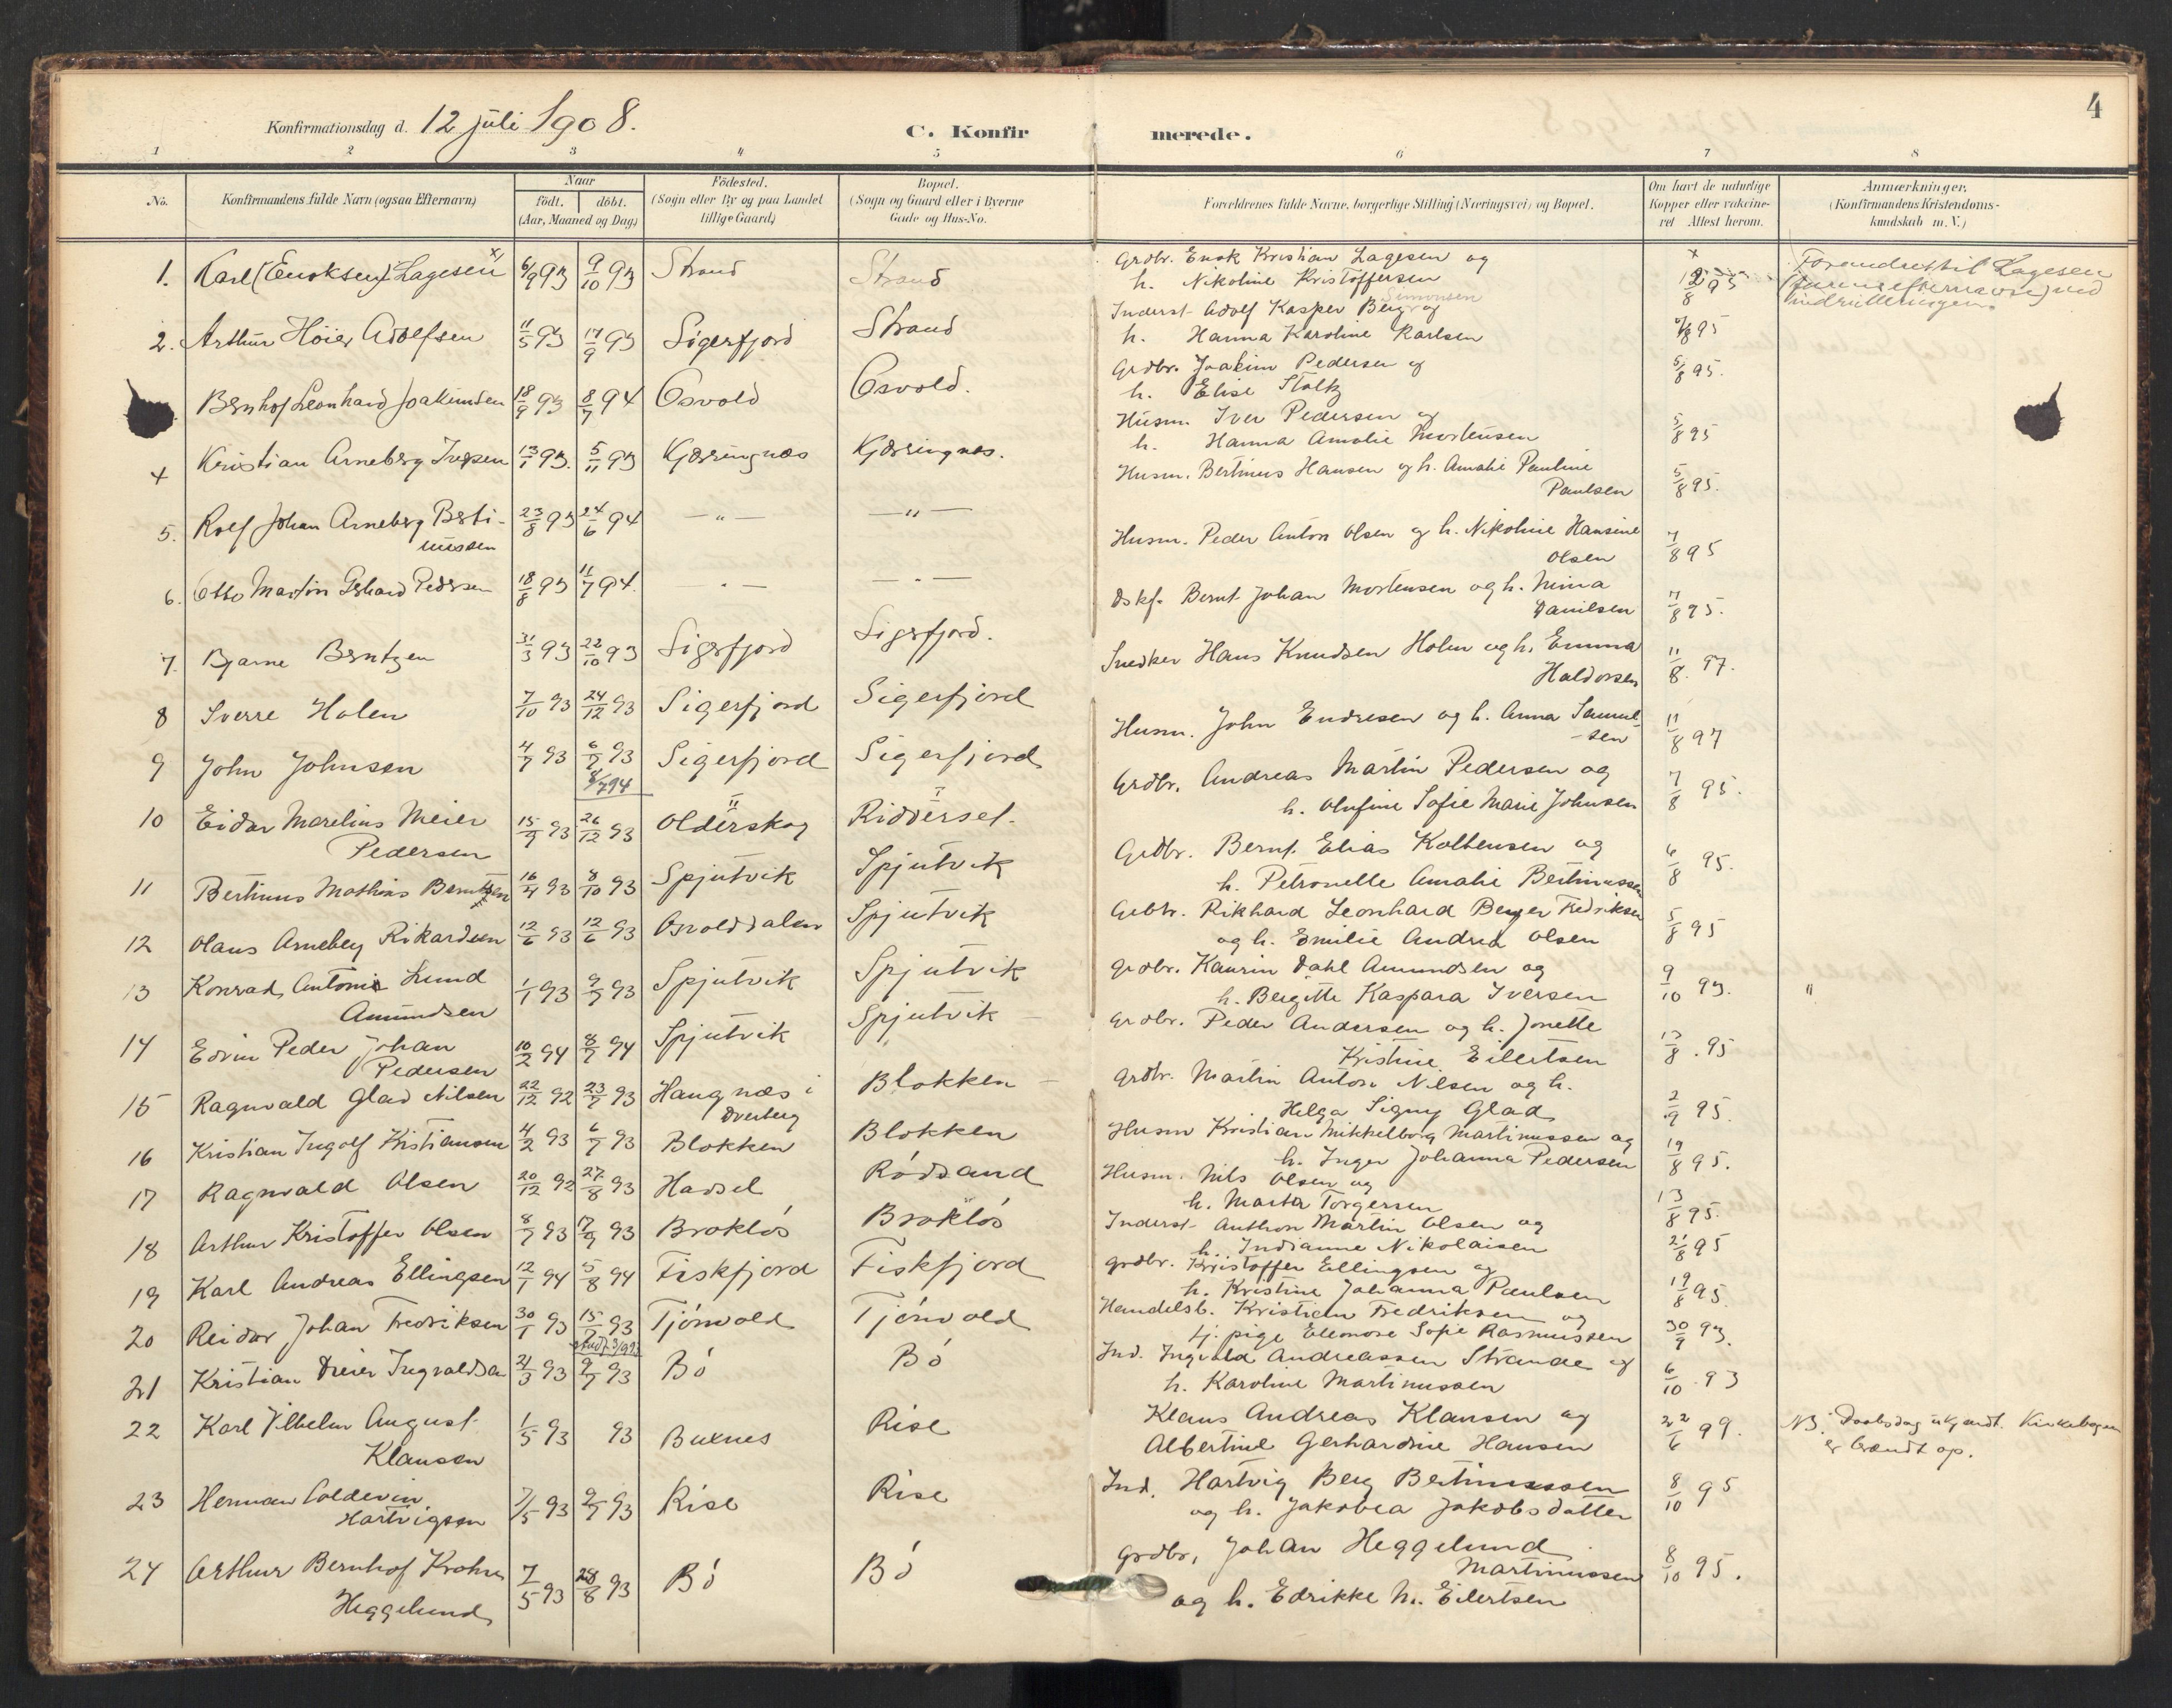 4
Konfirmationsdag d. 12 juli 1908.
C. Konfir merede.
1 2 3 4 5 6 7 8
No. Konfirmandens fulde Navn (ogsaa Efternavn) Naar født. døbt. (Aar, Maaned og Dag) Födested. (Sogn eller By og paa Landet tillige Gaard) Bopæl. (Sogn og Gaard eller i Byerne Gade og Hus-No. Forældrenes fulde Navne, borgerlige Stilling (Næringsvei) og Bopæl. Om havt de naturlige Kopper eller vakcineret Attest herom. Anmærkninger. (Konfirmandens Kristendomskundskab m. V.)
1. Karl (Enoksen) Lagesen x) 6/9 93 9/10 93 Strand Strand Grdbr. Enok Kristian Lagesen og
h. Nikoline Kristoffersen
Forandret til Lagesen
ved
2. Arthur Höier Adolfsen 11/5 93 17/9 93 Sigerfjord Strand Inderst Adolf Kasper Berg og Simonsen
h. Hanna Karoline Karlsen 7/8 95
Bernhof Leonhard Joakimsen 18/9 93 8/7 94 Osvold Osvold. Grdbr. Joakim Pedersen og
h. Elise Stoltz 5/8 95.
4 Kristian Arneberg Iversen 13/1 93. 5/11 93 Kjæringnæs Kjæringnæs. Husm. Iver Pedersen og
h. Hanna Amalie Mortensen 5/8 95
5. Rolf Johan Arneberg Berti-
nussen 23/8 93 24/6 94 — " — — " — Husm. Bertinus Hansen og h. Amalie Pauline
Paulsen 5/8 95.
6. Otto Martin Gerhard Pedersen 18/8 93 11/7 94. — " — — " — Husm. Peder Anton Olsen og h. Nikoline Hansine
Olsen 7/8 95
7. Bjarne Berntzen 31/3 93 22/10 93 Sigerfjord Sigerfjord. Dskf. Bernt Johan Mortensen og h. Nina
Danilsen 7/8 95.
8 Sverre Holen 7/10 93 24/12 93 Sigerfjord Sigerfjord Snedker Hans Knudsen Holm og h. Emma
Haldorsen 11/8. 97.
9 John Johnsen 4/7 93 6/7 93 Sigerfjord Sigerfjord Husm. John Endresen og h. Anna Samuel-
-sen 11/8 97
10 Eidar Marelius Meier
Pedersen 15/9 93 26/12 93 8/7 94 Olderskog Ridderset. Grdbr. Andreas Martin Pedersen og
h. Olufine Sofie Marie Johnsen 7/8 95.
11 Bertinus Mathias Berntzen 16/4 93 8/10 93 Spjutvik Spjutvik Grdbr. Bernt Elias Kolbensen og
h. Petronelle Amalie Bertinussen 6/8 95.
12 Olaus Arneberg Rikardsen 12/6 93 12/6 93 Osvolddalen Spjutvik Grbr. Rikhard Leonhard Berger Fedriksen
og h. Emilie Andrea Olsen 5/8 95
13 Konrad Antoni Lund
Amundsen 1/1 93 9/7 93 Spjutvik Spjutvik Grdbr. Kaurin Dahl Amundsen og
h. Bergitte Kaspara Iversen 9/10 93. "
14 Edvin Peder Johan
Pedersen 10/2 94 8/7 94 Spjutvik Spjutvik Grdbr. Peder Andersen og h. Jonette
Kristine Eilertsen 13/8. 95
15 Ragnvald Glad Nilsen 22/12 92 23/7 93 Haugnæs i
Dverberg Blokken Grdbr. Martin Anton Nilsen og h.
Helga Signy Glad 2/9 95.
16 Kristian Ingolf Kristiansen 4/2 93 6/7 93 Blokken Blokken Husm Kristian Mikkelborg Martinussen og
h. Inger Johanna Pedersen 19/8 95.
17 Ragnvald Olsen 20/12 92 27/8 93 Hadsel Rødsand Husm. Nils Olsen og
h. Marta Torgersen 13/8 95.
18 Arthur Kristoffer Olsen 8/7 93 17/9 93 Brokløs Brokløs Inderst Anthon Martin Olsen og
h. Indianne Nikolaisen 21/8 95
19 Karl Andreas Ellingsen 12/1 94 5/8 94 Fiskfjord Fiskfjord Grdbr. Kristoffer Ellingsen og
h. Kristine Johanna Paulsen 19/8 95
20 Reidar Johan Fredriksen 30/1 93 15/7 93 Tjónvold Tjónvold Handelsb. Kristian Fredriksen og
tj. pige Eleonore Sofie Rasmussen 30/9 93.
21 Kristian Dreier Ingvaldsen 21/3 93 9/7 93 Bó Bó Ind. Ingvald Andreassen Strande og
h. Karoline Martinussen 6/10. 93
22 Karl Vilhelm August
Klausen 1/5 93 93 Buknes Rise Klaus Andreas Klausen og
Albertine Gerhardine Hansen 22/6 99. NB. Daabsdag ukjendt. Kirkebogen
er brændt op.
23 Herman Coldevin
Hartvigsen 7/5 93 9/7 93 Rise Rise Ind. Hartvig Berg Bertinussen
og h. Jakobea Jakobsdatter 8/10 95
24 Arthur Bernhof Krohn
Heggelund 7/5 93 28/8 93 Bó Bó Grdbr, Johan Heggelund
Martinussen
og h. Edrikke M. Eilertsen 8/10 95.